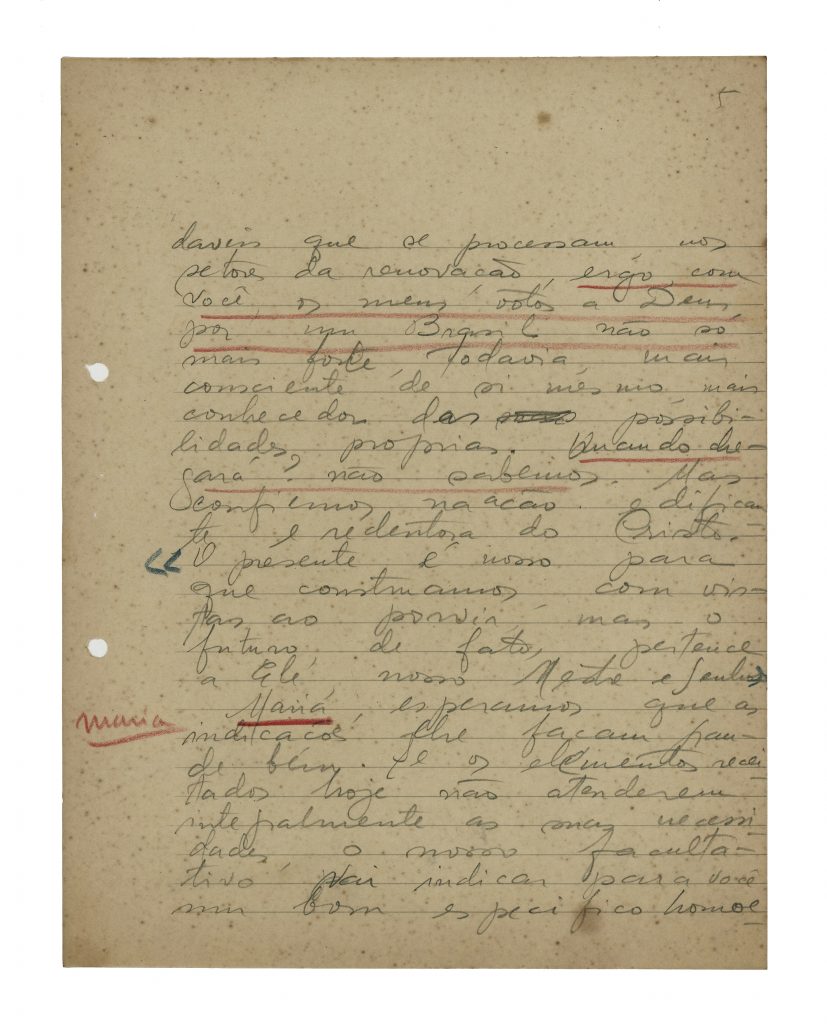 5
que se processam nos
setores da renovação, ergo, com
você, os meus votos a Deus
por um Brasil não só
mais forte, todavia mais
consciente de si mesmo mais
conhecedor das possibi-
lidades proprias. Quando che-
gará? não sabemos. Mas
confiemos na ação edifican
te e redentora do Cristo.
« O presente é nosso para
que construamos com vis-
tas ao porvir, mas o
futuro de fato, pertence
a Ele nosso Mestre e Senhor»
maria Maria, esperamos que as
indicações lhe façam gran-
de bem. Se os elementos recei
tados hoje não atenderem
integralmente as suas necessi
dades, o nosso faculta-
tivo vai indicar para você
um bom especifico homoe-